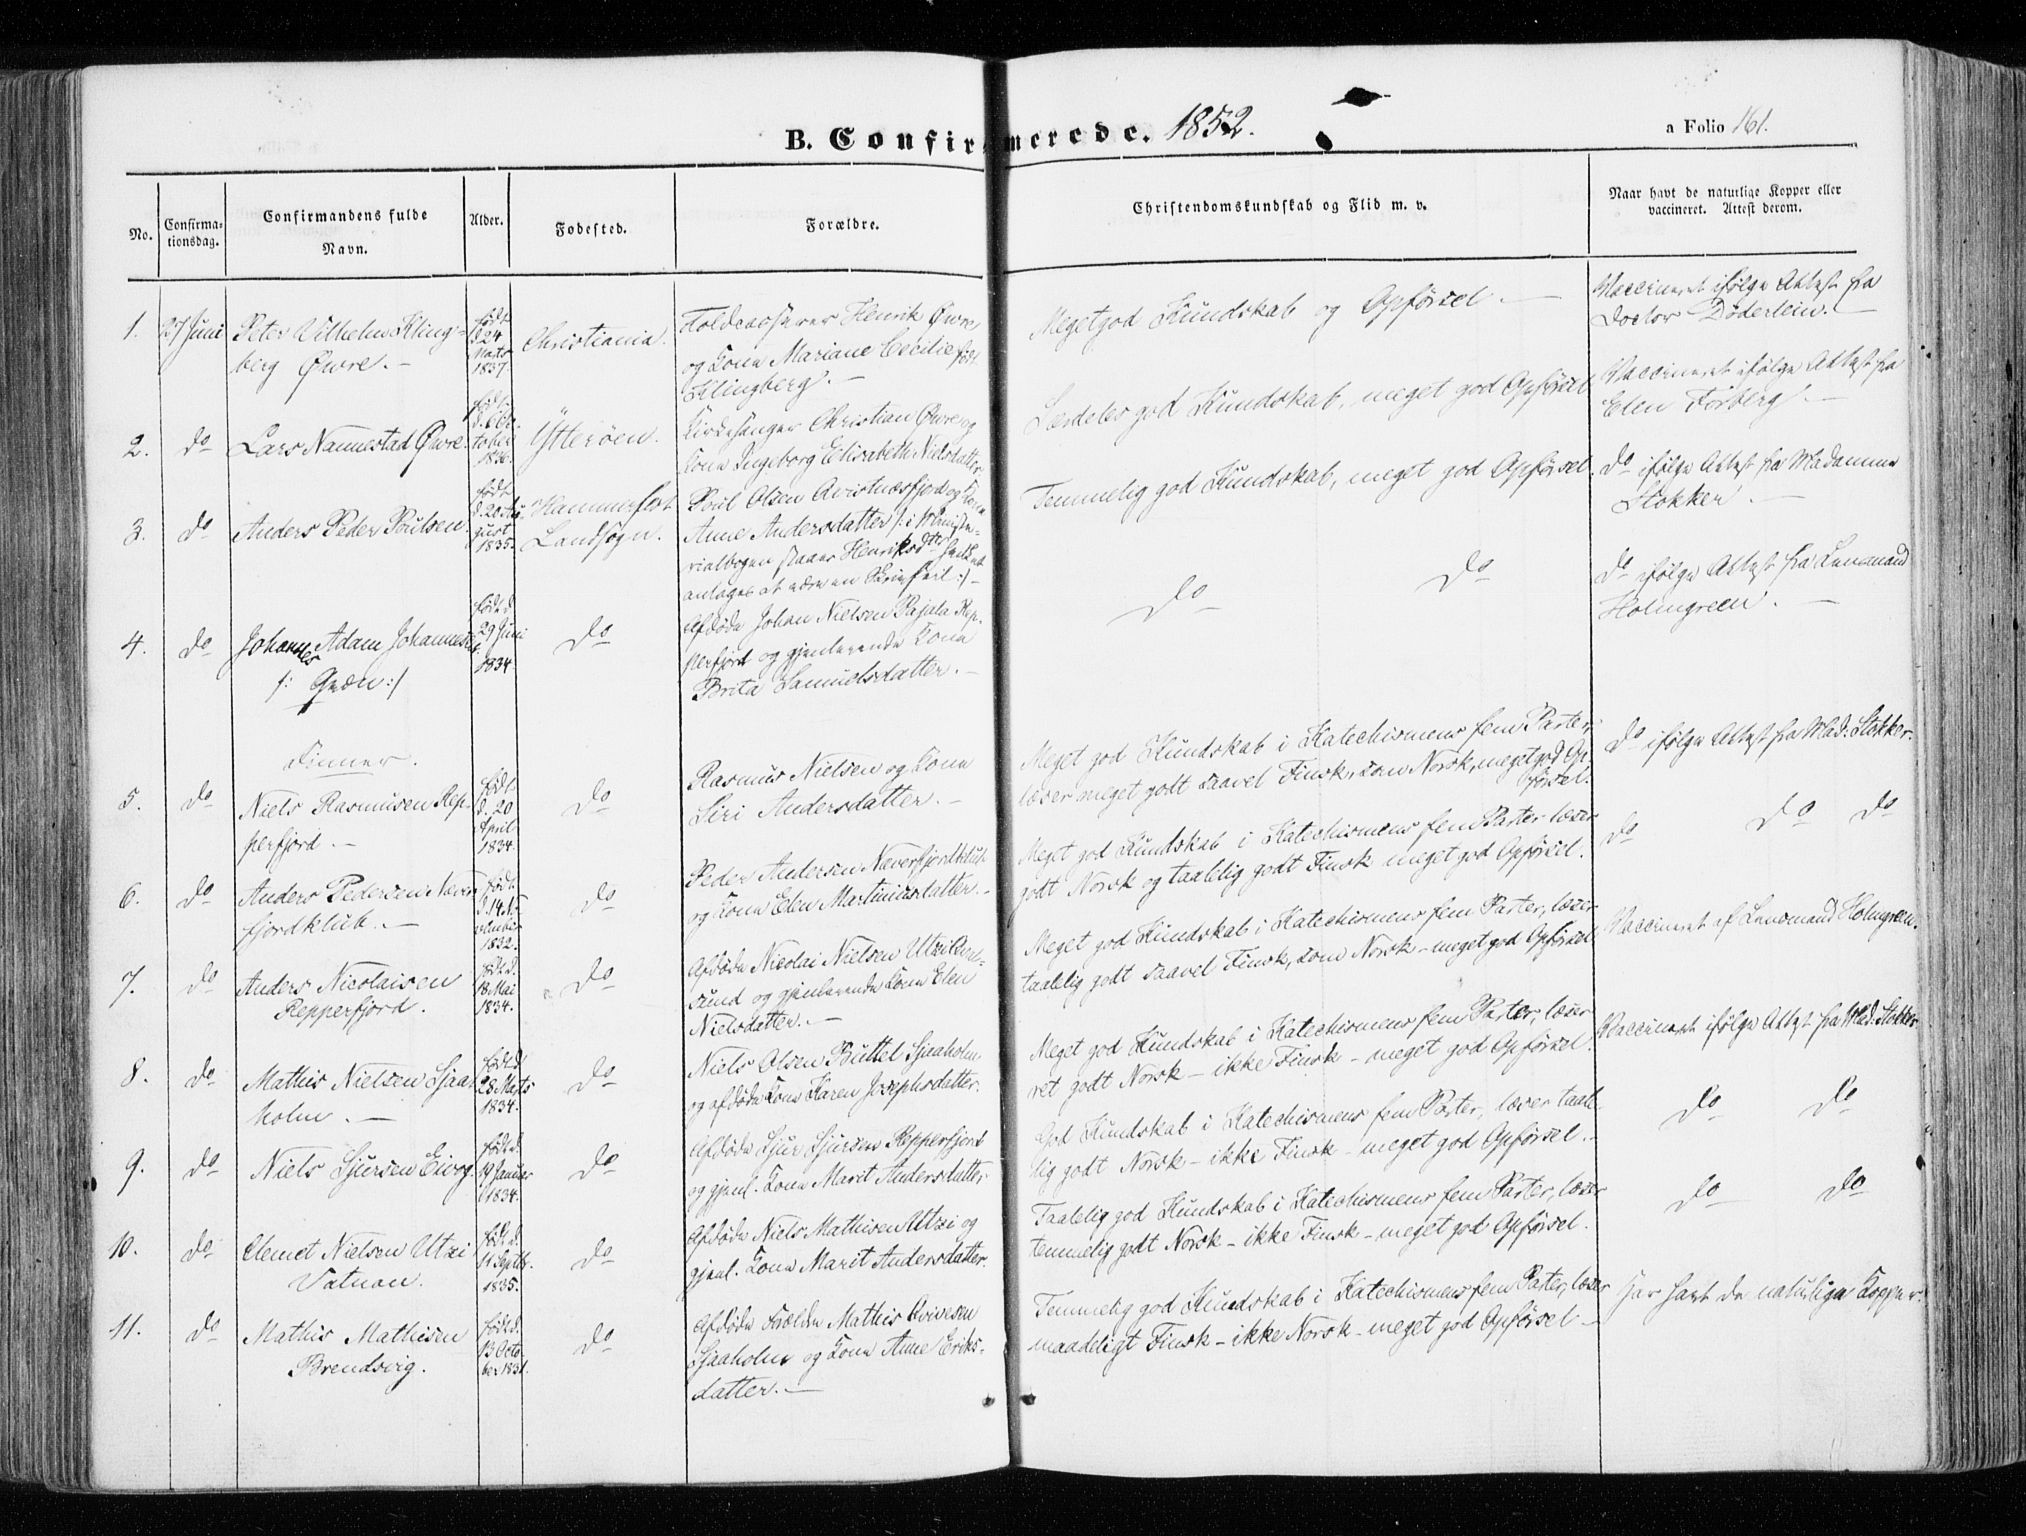 B. Confirmerede. 1852.
a Folio 161.
No.
Confirma-
tionsdag.
Confirmandens fulde
Navn.
Alder.
Fødested.
Forældre.
Christendomskundskab og Flid m. v.
Naar havt de naturlige Kopper eller
vaccineret. Attest derom.
1. 27 Juni Peter Vilhelm Kling-
berg Øwre. -
født
d. 24
Marts
1837.
Christiania.
Toldcasserer Henrik Øwre
og Kone Mariane Cecilie født
Klingberg. -
Megetgod Kundskab og Opførsel -
Vaccineret ifølge Attest fra
Doctor Døderlein. -
2. do Lars Nannestad Øwre.
født
d. 6 Oc-
tober
1836.
Ytterøen.
Kirkesanger Christian Øwre og
Kone Ingeborg Elisabeth Nielsdatter
Særdeles god Kundskab, meget god Opførsel
Vaccineret ifølge Attest fra
Elen Forberg. -
3. do Anders Peder Poulsen.
født
d. 20 Au-
gust
1835.
Hammerfest
Landsogn.
Poul Olsen Avistnæsfjord og Kone
Anne Andersdatter /: i Ministe-
rialbogen staaer Henriksdtr
antages at være en Skrivfeil :/ -
Temmelig god Kundskab, meget god Opførsel.
do ifølge Attest fra Madamme
Stokker. -
4. do Johannes Adam Johannesen
/: Qvæn :/
født d.
29 Juni
1834
do
Afdøde Johan Nielsen Pajala Rep-
perfjord og gjenlevende Kone
Brita Samuelsdatter. -
do do
do ifølge Attest fra Lensmand
Holmgreen. -
Finner.
5. do Niels Rasmusen Rep-
perfjord -
født
d. 20
April
1834.
do
Rasmus Nielsen og Kone
Siri Andersdatter. -
Meget god Kundskab i Katechismens fem Parter,
læser meget godt saavel Finsk, som Norsk, meget god Op-
førsel.
do ifølge Attest fra Mad: Stokker.
6. do Anders Pedersen Næver-
fjordklub. -
født
d. 14 No-
vember
1832.
do
Peder Andersen Næverfjordklub
og Kone Elen Martinusdatter. -
Meget god Kundskab i Katechismens fem Parter læser
godt Norsk og taalelig godt Finsk meget god Opførsel.
do do do
7. do Anders Nicolaisen
Repperfjord.
født d.
18 Mai
1834.
do
Afdøde Nicolai Nielsen Utzi
sund og gjenlevende Kone Elen
Nielsdatter. -
Meget god Kundskab i Katechismens fem Parter, læser
taalelig godt saavel Finsk, som Norsk - meget god Opførsel.
Vaccineret af Lensmand Holmgreen.
8. do Mathis Nielsen Sjaa-
holm. -
født d.
28 Marts
1834.
do
Niels Olsen Buttel Sjaaholm
og afdøde Kone Karen Josephsdatter.
Meget god Kundskab i Katechismens fem Parter, læser
ret godt Norsk - ikke Finsk - meget god Opførsel.
Vaccineret ifølge Attest fra Mad: Stokker
9. do Niels Sjursen Eivog.
født d.
19 Januar
1834.
do
Afdøde Sjur Sjursen Repperfjord
og gjenl. Kone Marit Andersdatter
God Kundskab i Katechismens fem Parter, læser taale-
lig godt Norsk - ikke Finsk - meget god Opførsel. -
do do
10. do Clemet Nielsen Utzi
Vatnan.
født d.
11 Septbr.
1835.
do
Afdøde Niels Mathisen Utzi og
gjenl. Kone Marit Andersdatter.
Taalelig god Kundskab i Katechismens fem Parter, læser
temmelig godt Norsk - ikke Finsk - meget god Opførsel.
do do
11. do Mathis Mathisen
Brendsvig.
født d.
13 Octo-
ber 1831.
do
Afdøde Forældre Mathis Ovivesen
Sjaaholm og Kone Anne Eriks-
datter. -
Temmelig god Kundskab i Katechismens fem Parter, læser
maadeligt Finsk - ikke Norsk - meget god Opførsel -
Har havt de naturlige Kopper.